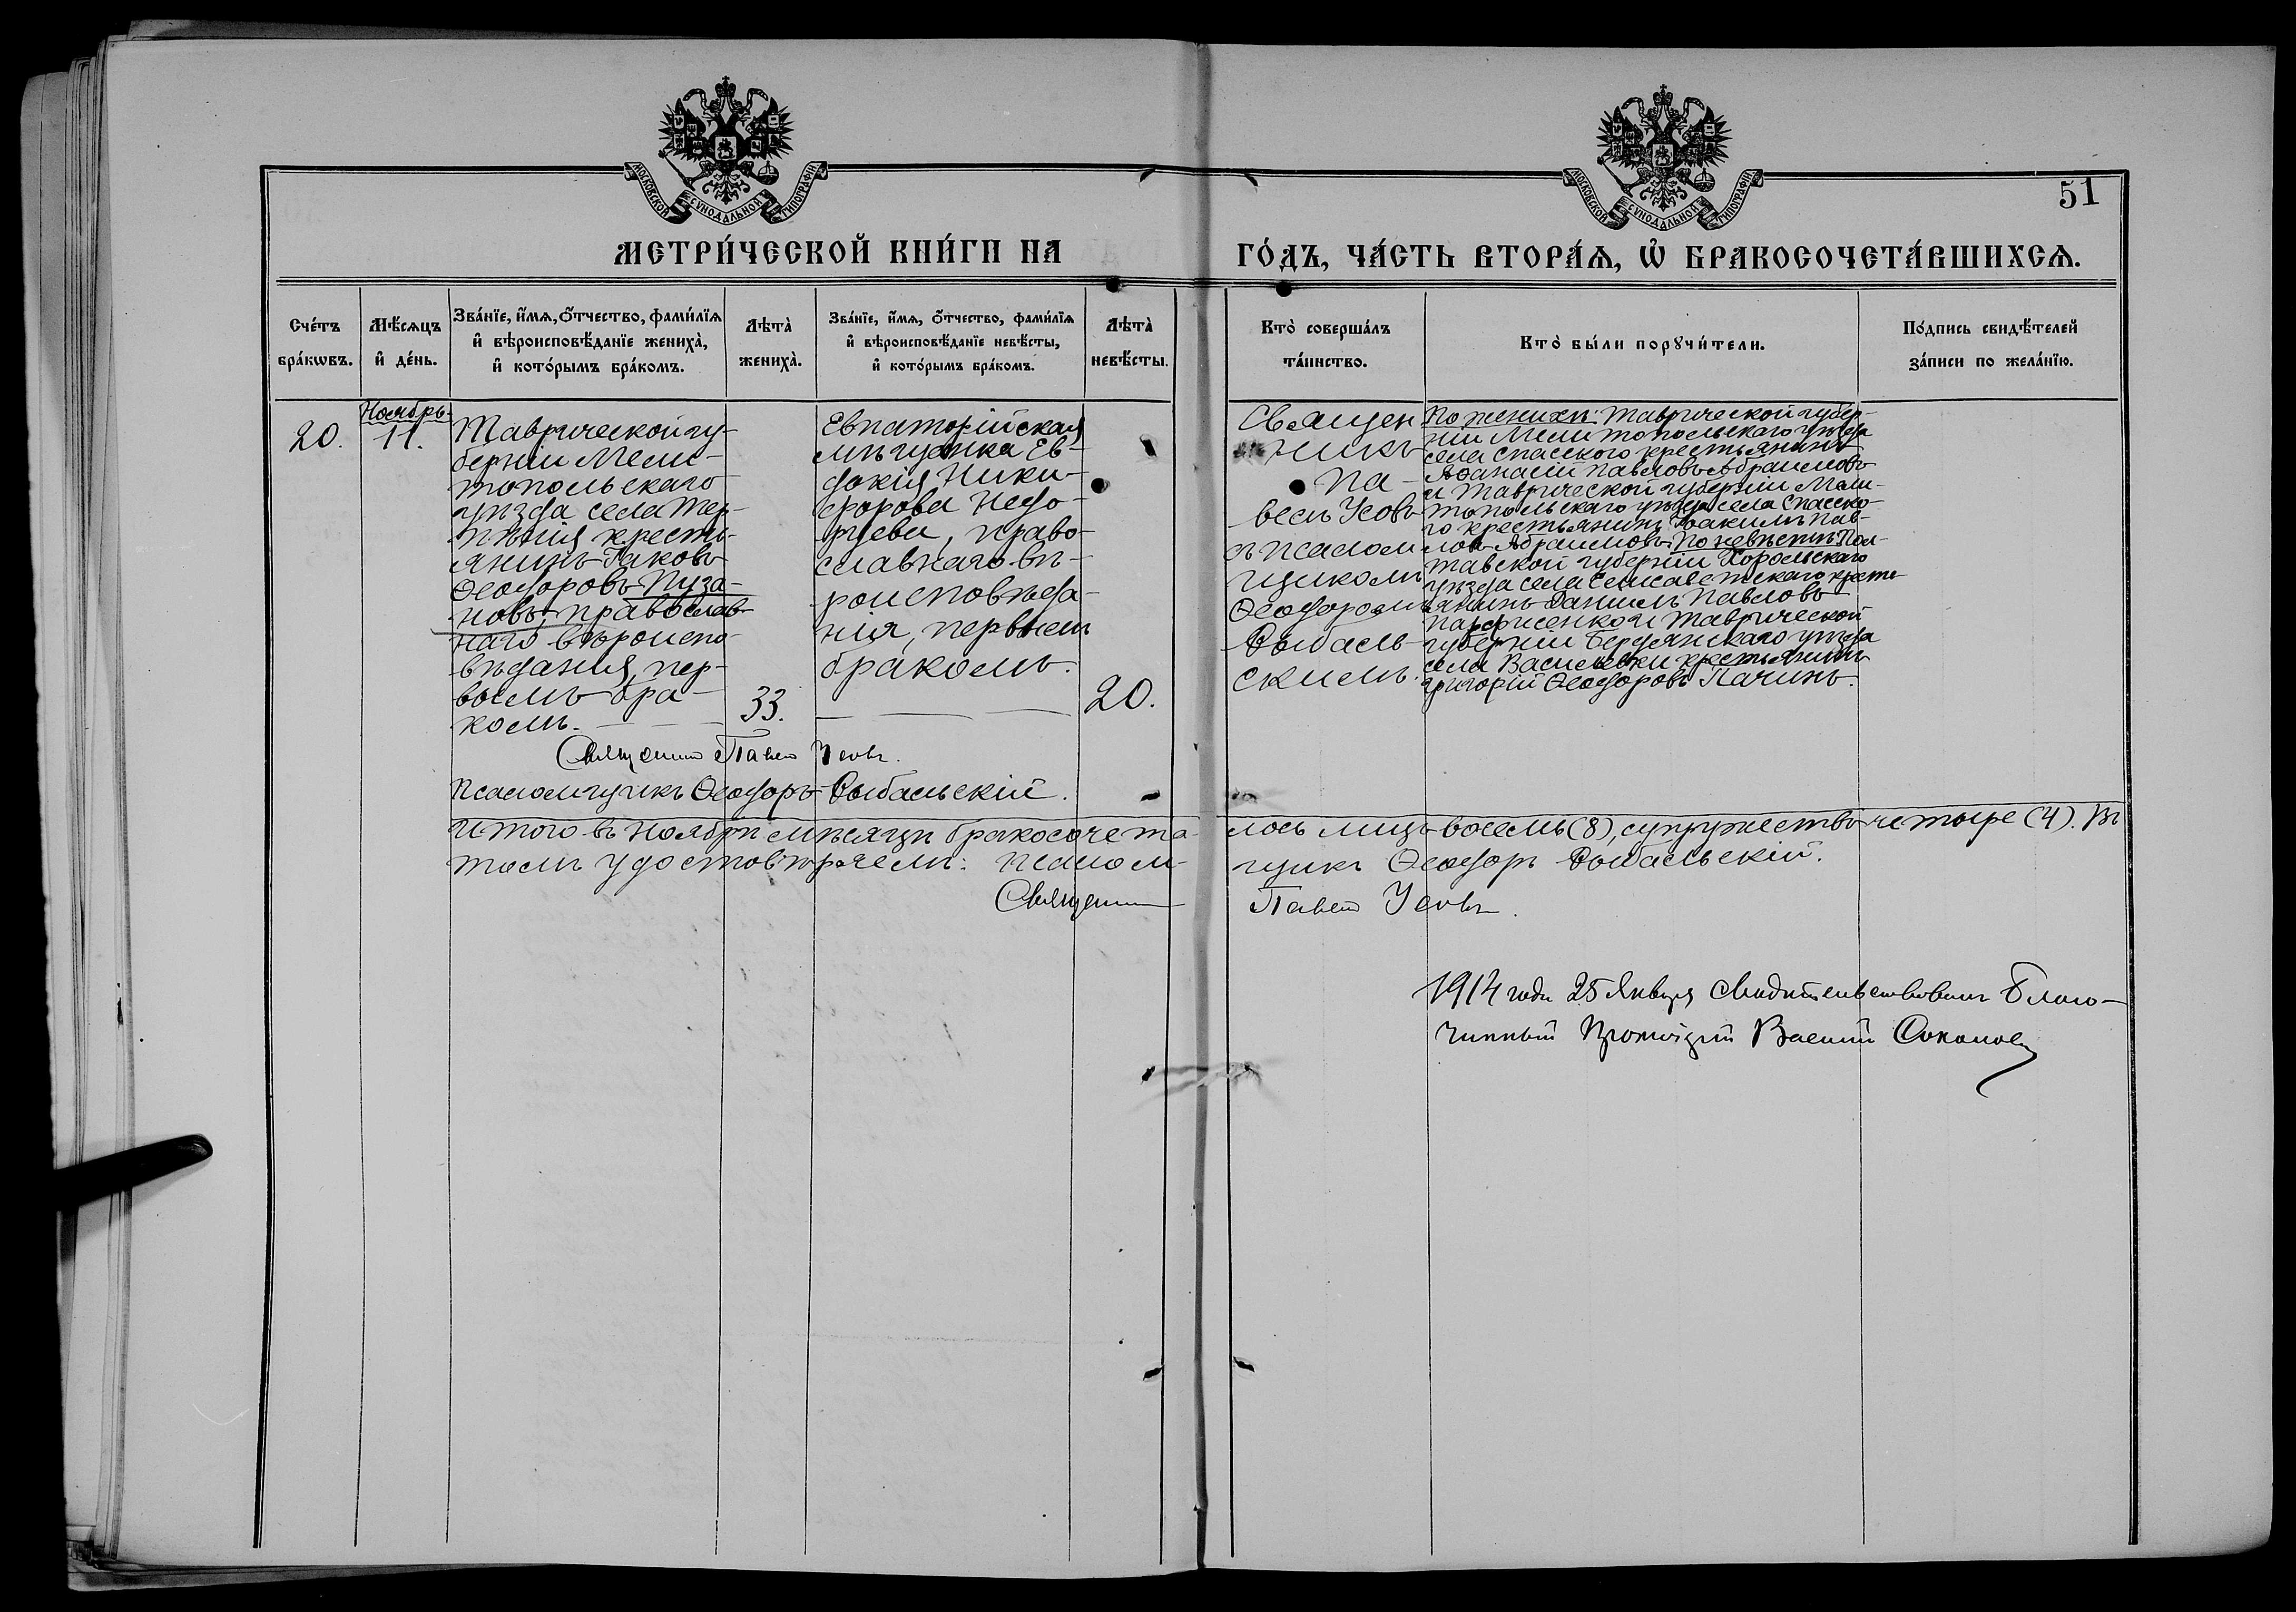 МОСКОВСКОЙ СУНОДАЛЬНОЙ ТИПОГРАФІИ
МОСКОВСКОЙ СУНОДАЛЬНОЙ ТИПОГРАФІИ
51
МЕТРИ́ЧЕСКОЙ КНИ́ГИ НА
ГО́ДЪ, ЧА́СТЬ ВТОРА́Ѧ, Ѽ БРАКОСОЧЕТА́ВШИХСѦ.
Сче́тъ
бра́кѡвъ.
Мѣ́сѧцъ
и҆ де́нь.
Зва́нїе, и҆́мѧ, ѻ҆́тчество, фами́лїѧ
и҆ вѣроисповѣ́данїе жениха̀,
и҆ кото́рымъ бра́комъ.
Лѣта̀
жениха̀.
Зва́нїе, и҆́мѧ, ѻ҆́тчество, фами́лїѧ
и҆ вѣроисповѣ́данїе невѣ́сты,
и҆ кото́рымъ бра́комъ.
Лѣта̀
невѣ́сты.
Кто̀ соверша́лъ
та́инство.
Кто̀ бы́ли порꙋчи́тели.
По́дпись свидѣ́телей
за́писи по жела́нїю.
20.
Ноябрь.
11.
Таврической гу-
берніи Мели-
топольскаго
уѣзда села Тер-
пѣнія кресть-
янинъ Іаковъ
Ѳеодоровъ Пуза-
новъ, православ-
наго вѣроиспо-
вѣданія, пер-
вымъ бра-
комъ.
33.
Евпаторійская
мѣщанка Ев-
докія Ники-
форова Недо-
рѣцева, право-
славнаго вѣ-
роисповѣда-
нія, первымъ
бракомъ.
20.
Священ
никъ
Па-
велъ Усовъ
съ псалом
щикомъ
Ѳеодоромъ
Рыбаль-
скимъ.
По женихѣ: Таврической губер-
ніи Мелитопольскаго уѣзда
села Спасскаго крестьянинъ
Аѳанасій Павловъ Абраимовъ
и Таврической губерніи Мели-
топольскаго уѣзда села Спасско-
го крестьянинъ Іоакимъ Пав-
ловъ Абраимовъ. По невѣстѣ: Пол-
тавской губерніи Хорольскаго
уѣзда села Елисаветскаго крест-
янинъ Даніилъ Павловъ
Парфисенко и Таврической
губерніи Бердянскаго уѣзда
села Васильевки крестьянинъ
Григорій Ѳеодоровъ Пачинъ.
Священник Павел Усовъ.
Псаломщикъ Ѳеодоръ Рыбальскій.
Итого въ Ноябрѣ мѣсяцѣ бракосочета-
лось лицъ восемь (8), супружествъ четыре (4). Въ
томъ удостовѣряемъ: Псалом-
щикъ Ѳеодоръ Рыбальскій.
Священник
Павел Усовъ.
1914 года 25 Января свидѣтельствовалъ Благо-
чинный Протоіерей Василій Соколов